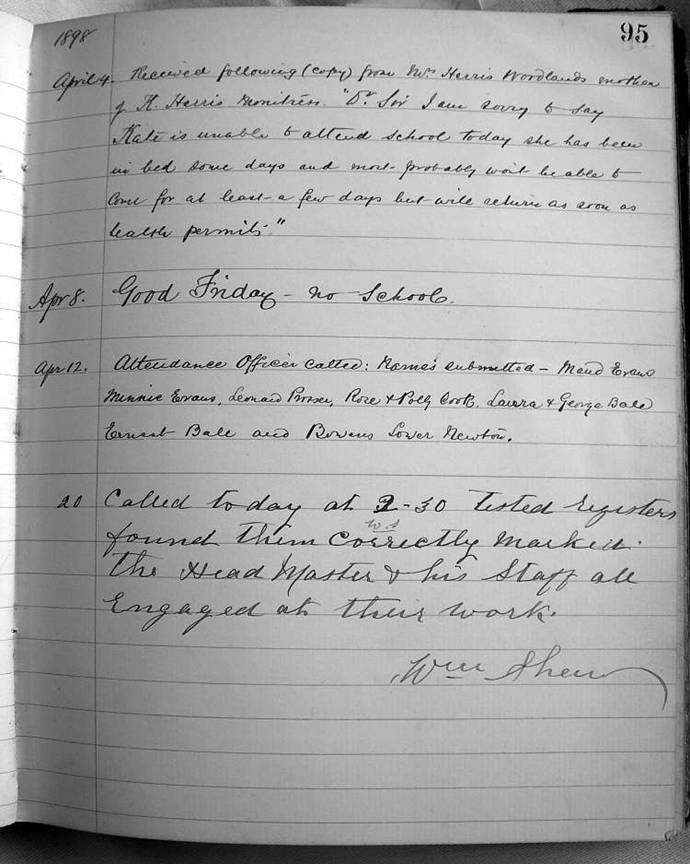 95
1898
April 4. Received following (copy) from Mrs Harris Woodlands mother
of K. Harris Monitress. "Dr Sir I am sorry to say
Kate is unable to attend school today she has been
in bed some days and most probably wont be able to
come for at least a few days but will return as soon as
health permits."
Apr 8. Good Friday - no School.
Apr 12. Attendance Officer called: Names submitted - Maud Evans
Minnie Evans, Leonard Prosser, Rose & Polly Cook, Laura & George Bale
Ernest Bale and Bowens Lower Newton.
20 Called today at 2-30 Tested Registers
W S
found them correctly marked.
The Head Master & his Staff all
Engaged at their work.
Wm Shew